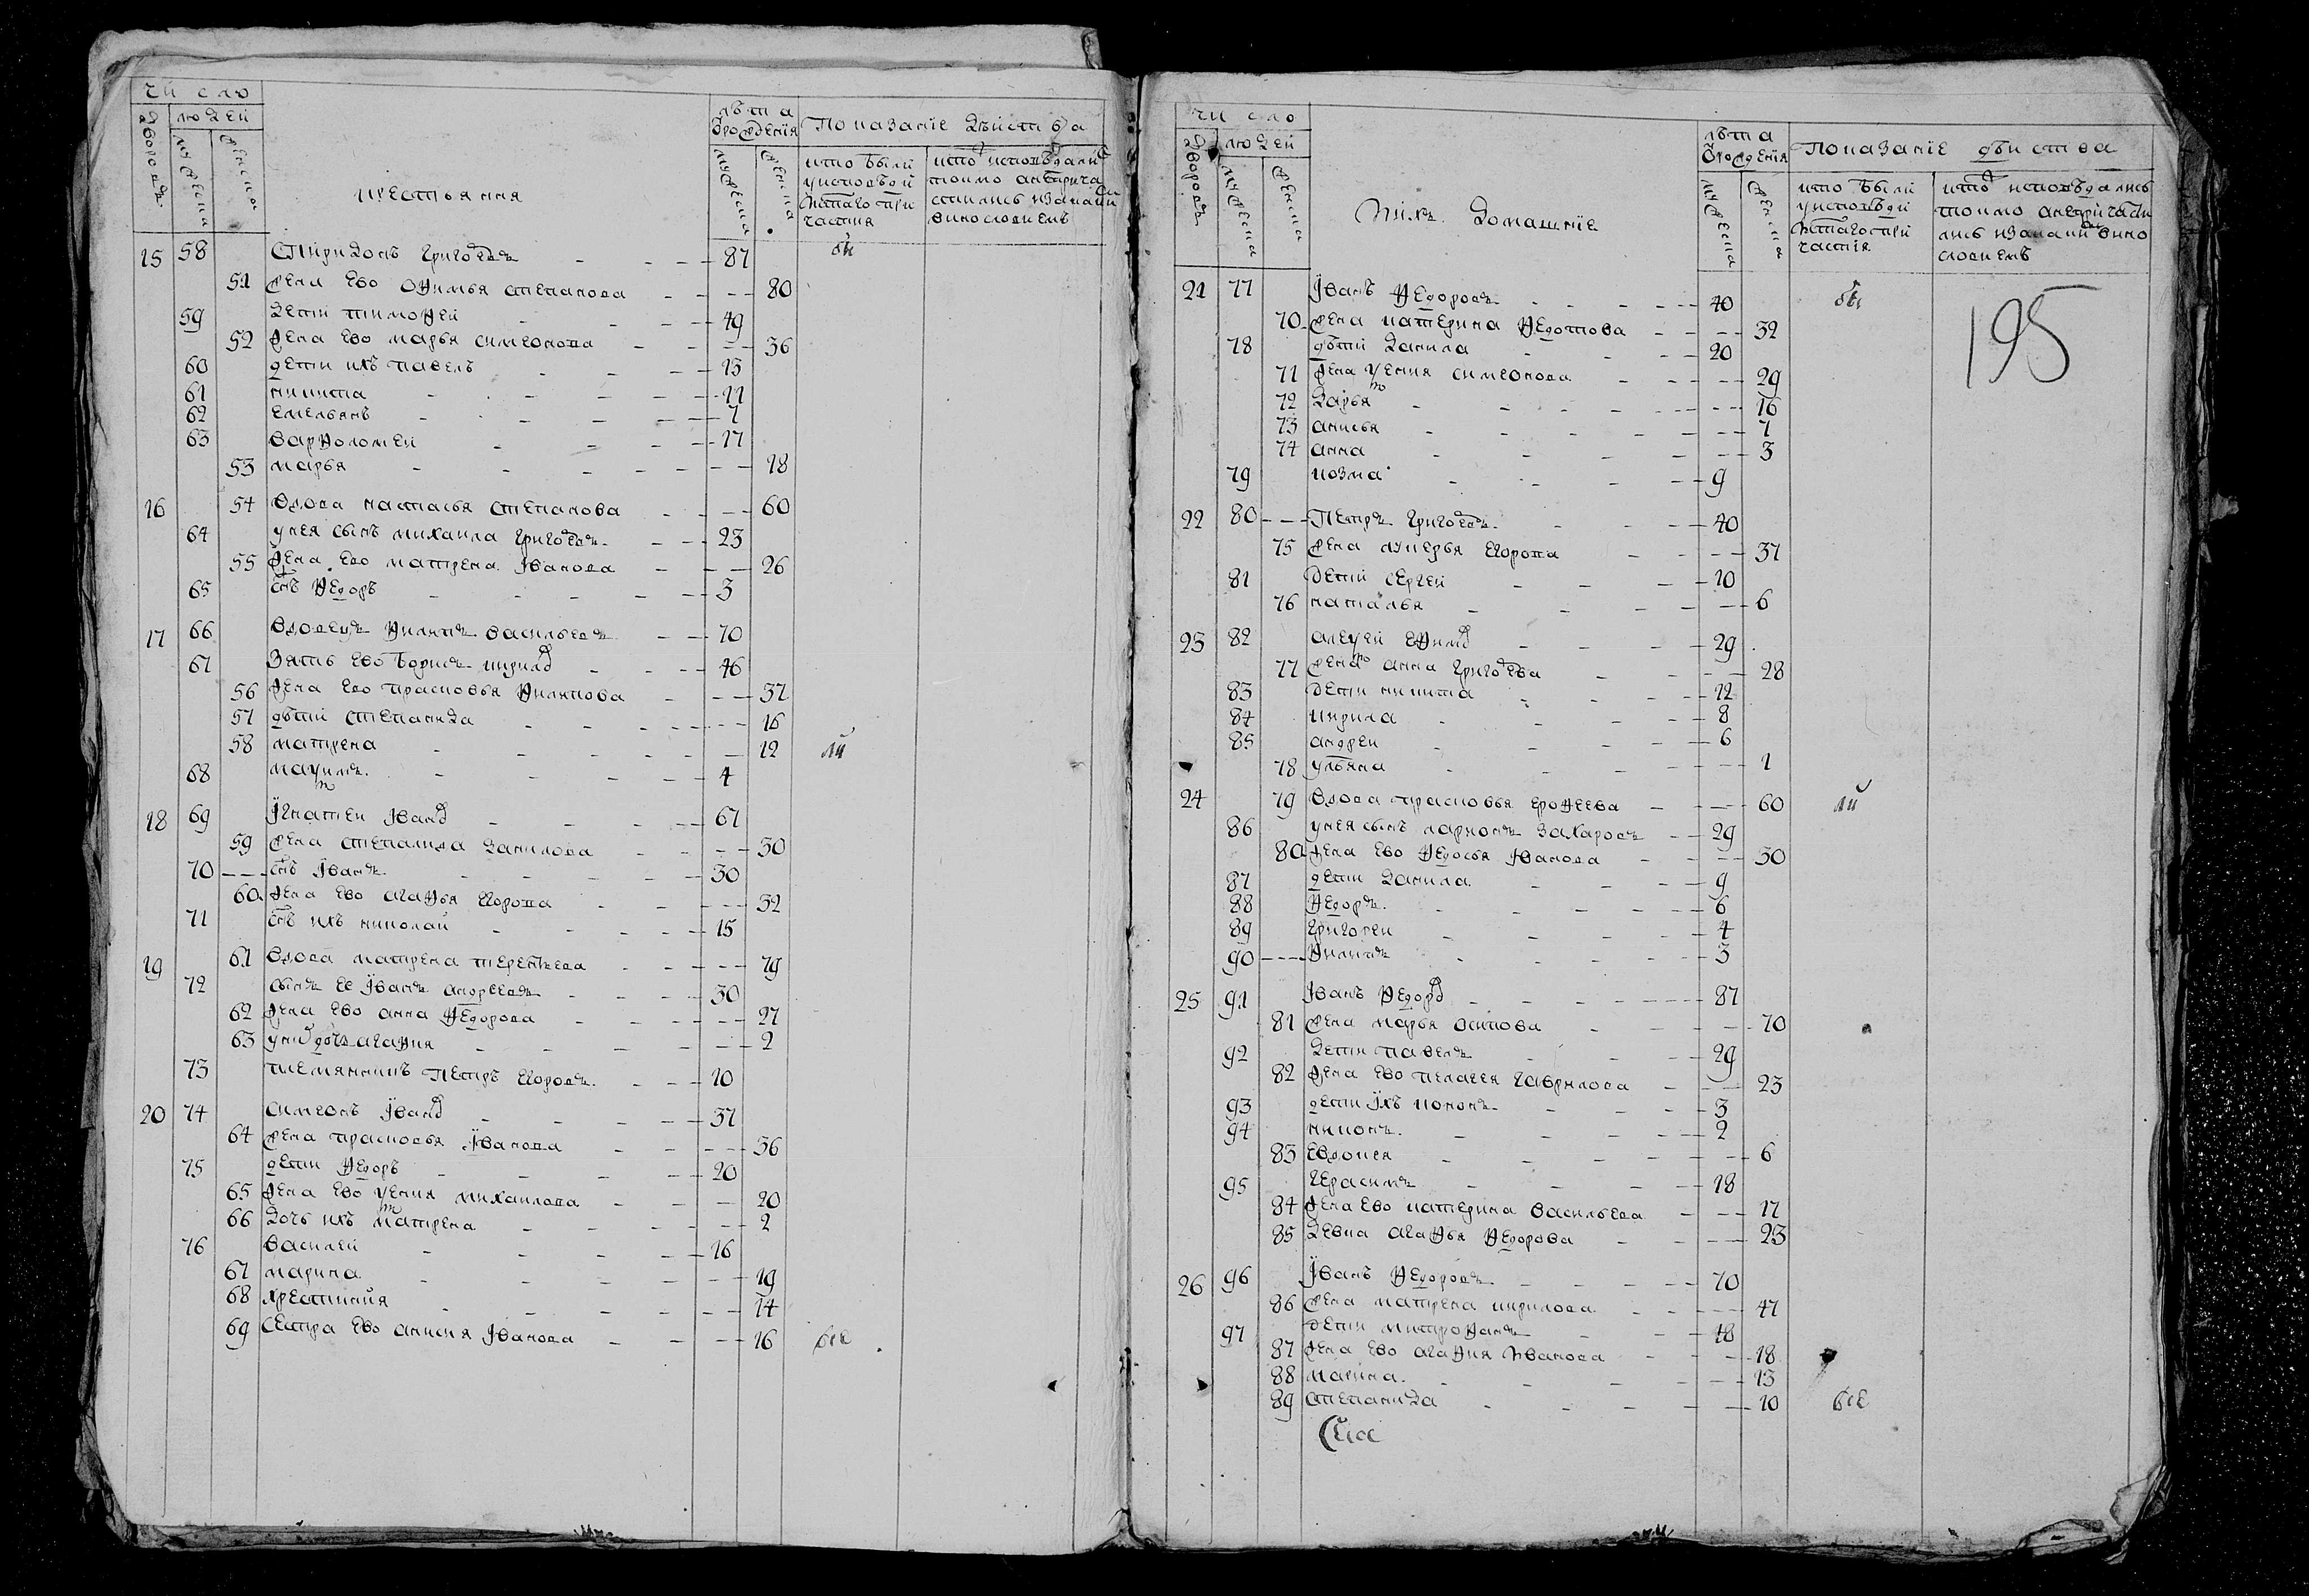 число
дворовъ
людей
мужеска
женска
крестьяння
лѣта
ѿрожденїя
мужеска
женска
Показанїе дѣиства
кто были
уисповѣди
истаго при
частия
15 58 Спиридонъ григоѣвъ 87 бы
51 жена ево Офимья степанова 80
59 дети тимофеи 49
52 жена ево марья симеонова 36
60 дети ихъ павелъ 13
61 никита 11
62 емельянъ 7
63 варфоломеи 17
53 марья 18
16 54 вдова настасья степанова 60
64 унея сынъ михаила григоѣвъ 23
55 жена ево матрена Iванова 26
65 снъ федоръ 3
17 66 вдовецъ филипъ васильевъ 70
67 Зять ево борисъ кирилов 46
56 жена ево прасковья филипова 37
57 дѣти степанида 16
58 матрена 12 ли
68 маѯимъ 4
18 69 Iгнатеи Iванов 67
59 жена степанида данилова 50
70 снъ Iванъ 30
60 жена ево агафья егорова 32
71 снъ ихъ николаи 15
19 61 вдова матрена терентьева 79
72 сынъ ее Iванъ андреевъ 30
62 жена ево анна федорова 27
63 уни дочь агафия 2
73 племянникъ Петръ егоровъ 10
20 74 симеонъ Iванов 37
64 жена прасковья Iванова 36
75 дети федоръ 20
65 жена ево ѯения михаилова 20
66 дочь ихъ матрена 2
76 василеи 16
67 марина 19
68 хрестиния 14
69 сестра ево анисия Iванова 16 все
число
дворовъ
людей
мужеска
женска
Iихъ домашнїе
лѣта
ѿрожденїя
мужеска
женска
Показанїе дѣиства
кто были
уисповѣди
истаго при
частїя
195
21 77 Iванъ федоровъ 40 бы
70 жена катерина федотова 32
78 дѣти данила 20
71 жена ѯения симеонова 29
72 дарья 16
73 анисья 7
74 анна 3
79 козма 9
22 80 Петръ григоѣвъ 40
75 жена лукерья егорова 37
81 дети сергеи 10
76 наталья 6
23 82 алеѯеи ефимов 29
77 жена анна григоѣва 28
83 дети никита 12
84 кирила 8
85 андреи 6
78 ульяна 1
24 79 вдова прасковья ерофеева 60 ли
86 унея сынъ ларионъ захаровъ 29
80 жена ево федосья Iванова 30
87 дети данила 9
88 федоръ 6
89 григореи 4
90 филипъ 3
25 91 Iванъ федоров 87
81 жена марья осипова 70
92 дети павелъ 29
82 жена ево пелагея гаврилова 23
93 дети Iхъ кононъ 3
94 никонъ 2
83 евдокея 6
95 герасимъ 18
84 жена ево катерина васильева 17
85 девка агафья федорова 23
26 96 Iванъ федоровъ 70
86 жена матрена кирилова 47
97 дети митрофанъ 18
87 жена ево агафия Iванова 18
88 марина 13
89 степанида 10 все